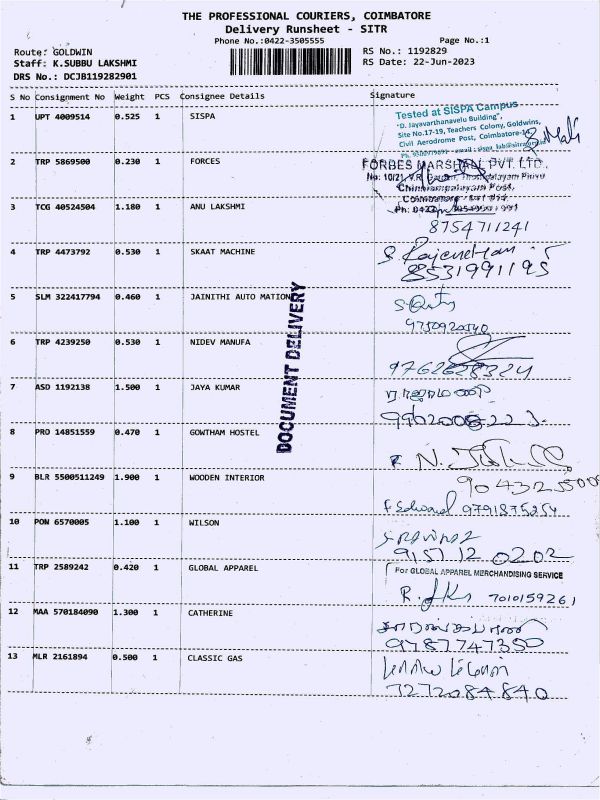 THE PROFESSIONAL COURIERS, COIMBATORE
Delivery Runsheet - SITR
Phone No.:0422-3505555
Page No.:1
Route: GOLDWIN
RS No.: 1192829
Staff: K.SUBBU LAKSHMI
RS Date: 22-Jun-2023
DRS No.: DCJB119282901
S No Consignment No Weight PCS Consignee Details Signature
1 UPT 4009514 0.525 1 SISPA
Tested at SISPA Campus
"D. Jayavarthanavelu Building",
Site No.17-19, Teachers Colony, Goldwins,
Civil Aerodrome Post, Coimbatore-14
2 TRP 5869500 0.230 1 FORCES
FORBES MARSHALL PVT. LTD.,
No: 10/21, V.R.
Chinniyampalayam Post,
Coimbatore
Ph: 0422
3 TCG 40524504 1.180 1 ANU LAKSHMI
8754711241
4 TRP 4473792 0.530 1 SKAAT MACHINE
S. Rajendran
8531991195
5 SLM 322417794 0.460 1 JAINITHI AUTO MATION
DOCUMENT DELIVERY
6 TRP 4239250 0.530 1 NIDEV MANUFA
7 ASD 1192138 1.500 1 JAYA KUMAR
8 PRO 14851559 0.470 1 GOWTHAM HOSTEL
9 BLR 5500511249 1.900 1 WOODEN INTERIOR
F Edward 9791875254
10 PON 6570005 1.100 1 WILSON
9157 12 0202
11 TRP 2589242 0.420 1 GLOBAL APPAREL
For GLOBAL APPAREL MERCHANDISING SERVICE
7010159261
12 MAA 570184090 1.300 1 CATHERINE
9787747350
13 MLR 2161894 0.500 1 CLASSIC GAS
7272084840